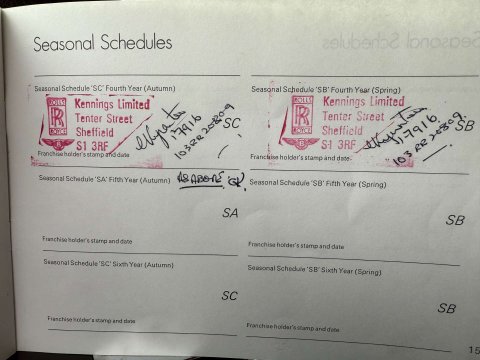 Seasonal Schedules
Seasonal Schedule 'SC' Fourth Year (Autumn)
ROLLS
RR
ROYCE
B
Kennings Limited
Tenter Street
Sheffield
S1 3RF
17916
103RR20809
SC
Franchise holder's stamp and date
Seasonal Schedule 'SB' Fourth Year (Spring)
ROLLS
RR
ROYCE
B
Kennings Limited
Tenter Street
Sheffield
S1 3RF
17916
103RR20809
SB
Franchise holder's stamp and date
Seasonal Schedule 'SA' Fifth Year (Autumn)
AS ABOVE
SA
Franchise holder's stamp and date
Seasonal Schedule 'SB' Fifth Year (Spring)
SB
Franchise holder's stamp and date
Seasonal Schedule 'SC' Sixth Year (Autumn)
SC
Franchise holder's stamp and date
Seasonal Schedule 'SB' Sixth Year (Spring)
SB
Franchise holder's stamp and date
15